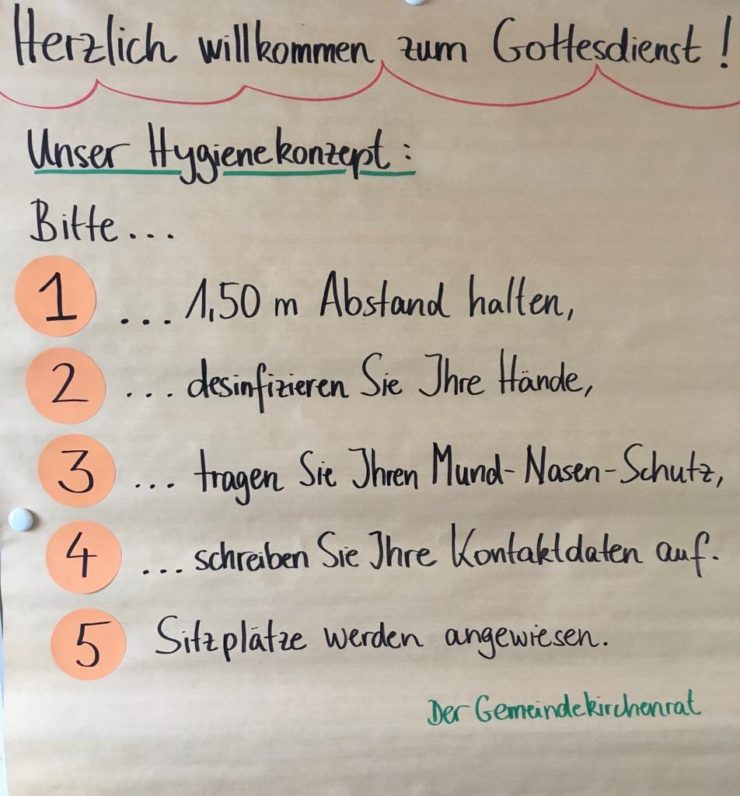 Herzlich willkommen zum Gottesdienst!
Unser Hygienekonzept:
Bitte...
1 ... 1,50 m Abstand halten,
2 ... desinfizieren Sie Ihre Hände,
3 ... tragen Sie Ihren Mund-Nasen-Schutz,
4 ... schreiben Sie Ihre Kontaktdaten auf.
5 Sitzplätze werden angewiesen.
Der Gemeindekirchenrat